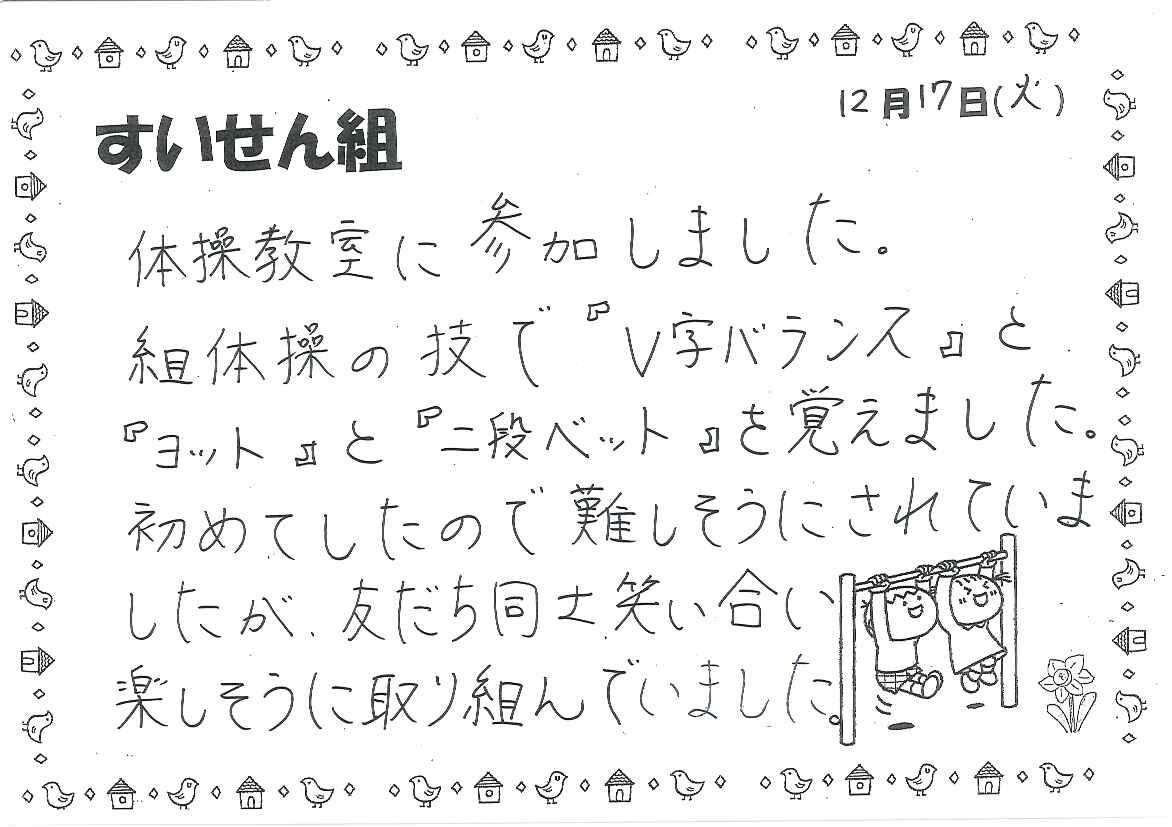 12月17日(火)
すいせん組
体操教室に参加しました。
組体操の技で『V字バランス』と
『ヨット』と『二段ベット』を覚えました。
初めてしたので難しそうにされていま
したが、友だち同士笑い合い
楽しそうに取り組んでいました。